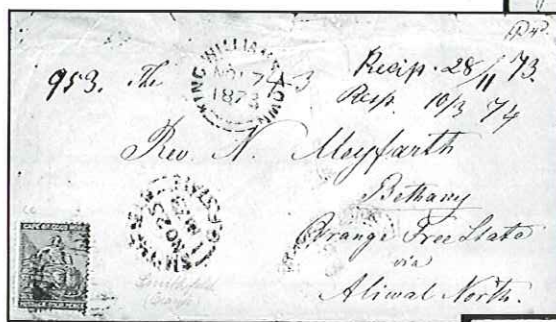 953. The
KING WILLIAMS TOWN
NO 17
1873
Recip. 28/11 73.
Resp. 10/3 74
Rev. N. Meyfarth
Bethany
Orange Free State
via
Aliwal North.
NO 25
CAPE OF GOOD HOPE
POSTAGE FOUR PENCE
Smithfield